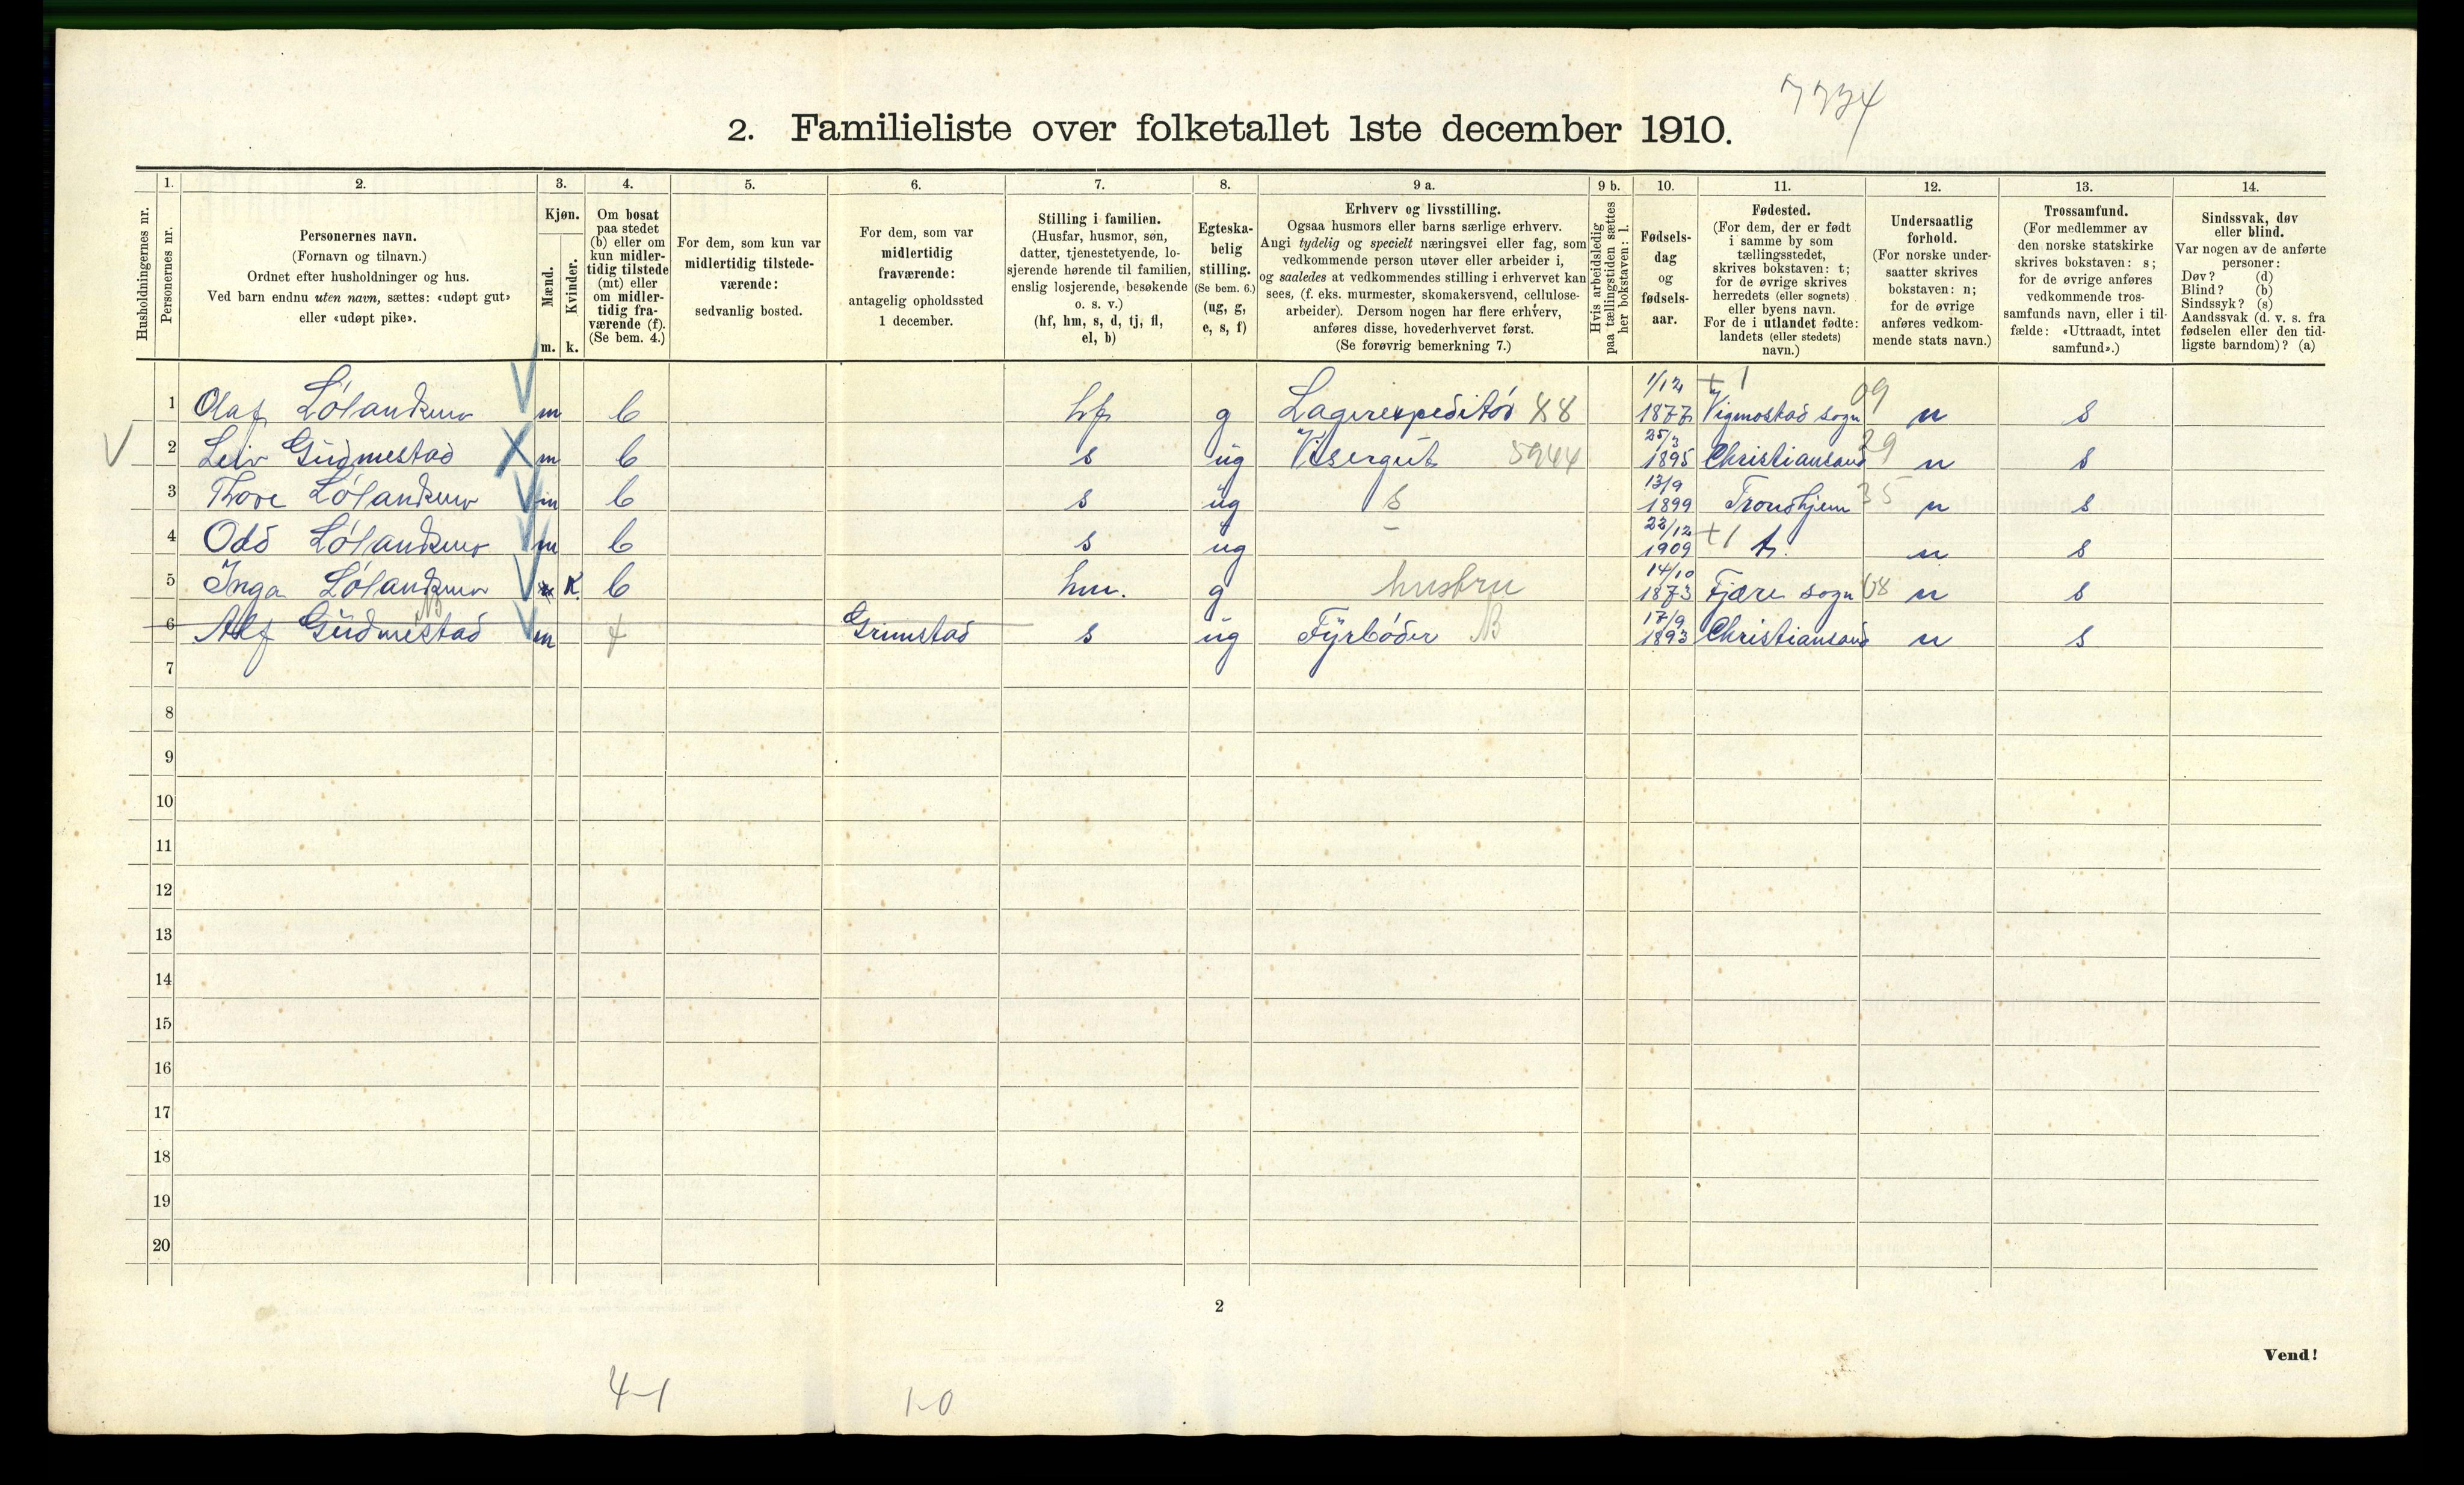 7734
2. Familieliste over folketallet 1ste december 1910.
Husholdningernes nr.
1.
Personernes nr.
2.
Personernes navn.
(Fornavn og tilnavn.)
Ordnet efter husholdninger og hus.
Ved barn endnu uten navn, sættes: «udøpt gut»
eller «udøpt pike».
3.
Kjøn.
Mænd.
Kvinder.
m. k.
4.
Om bosat
paa stedet
(b) eller om
kun midler-
tidig tilstede
(mt) eller
om midler-
tidig fra-
værende (f).
(Se bem. 4.)
5.
For dem, som kun var
midlertidig tilstede-
værende:
sedvanlig bosted.
6.
For dem, som var
midlertidig
fraværende:
antagelig opholdssted
1 december.
7.
Stilling i familien.
(Husfar, husmor, søn,
datter, tjenestetyende, lo-
sjerende hørende til familien,
enslig losjerende, besøkende
o. s. v.)
(hf, hm, s, d, tj, fl,
el, b)
8.
Egteska-
belig
stilling.
(Se bem. 6.)
(ug, g,
e, s, f)
9 a.
Erhverv og livsstilling.
Ogsaa husmors eller barns særlige erhverv.
Angi tydelig og specielt næringsvei eller fag, som
vedkommende person utøver eller arbeider i,
og saaledes at vedkommendes stilling i erhvervet kan
sees, (f. eks. murmester, skomakersvend, cellulose-
arbeider). Dersom nogen har flere erhverv,
anføres disse, hovederhvervet først.
(Se forøvrig bemerkning 7.)
9 b.
Hvis arbeidsledig
paa tællingstiden sættes
her bokstaven: l.
10.
Fødsels-
dag
og
fødsels-
aar.
11.
Fødested.
(For dem, der er født
i samme by som
tællingsstedet,
skrives bokstaven: t;
for de øvrige skrives
herredets (eller sognets)
eller byens navn.
For de i utlandet fødte:
landets (eller stedets)
navn.)
12.
Undersaatlig
forhold.
(For norske under-
saatter skrives
bokstaven: n;
for de øvrige
anføres vedkom-
mende stats navn.)
13.
Trossamfund.
(For medlemmer av
den norske statskirke
skrives bokstaven: s;
for de øvrige anføres
vedkommende tros-
samfunds navn, eller i til-
fælde: «Uttraadt, intet
samfund».)
14.
Sindssvak, døv
eller blind.
Var nogen av de anførte
personer:
Døv? (d)
Blind? (b)
Sindssyk? (s)
Aandssvak (d. v. s. fra
fødselen eller den tid-
ligste barndom)? (a)
1 Olaf m b hf g Lagerexpeditör 88 1/12 1877 +1 Vigmostad sogn 09 n s
2 Leiv Gudmestad m b s ug Visergut 5944 25/3 1895 Christiansand 29 n s
3 Thore m b s ug s 13/9 1899 Trondhjem 35 n s
4 Odd m b s ug - 22/12 1909 +1 t. n s
5 Inga k b hm. g husbru 14/10 1873 Fjære sogn 08 n s
6 Alf Gudmestad m f Grimstad s ug Fyrböder B 17/9 1893 Christiansand n s
7
8
9
10
11
12
13
14
15
16
17
18
19
20
2
Vend!
4-1
1-0